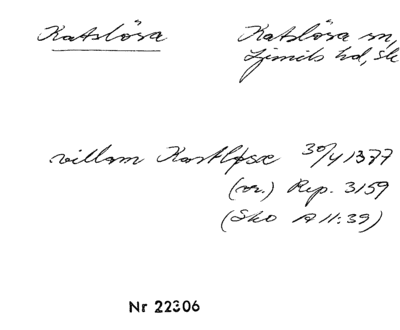 Katslösa Katslösa sn,
Ljunits hd, Sk
villam Kastløsæ 30/4 1377
(or.) Rep. 3159
(Sko A 11:39)
Nr 22306